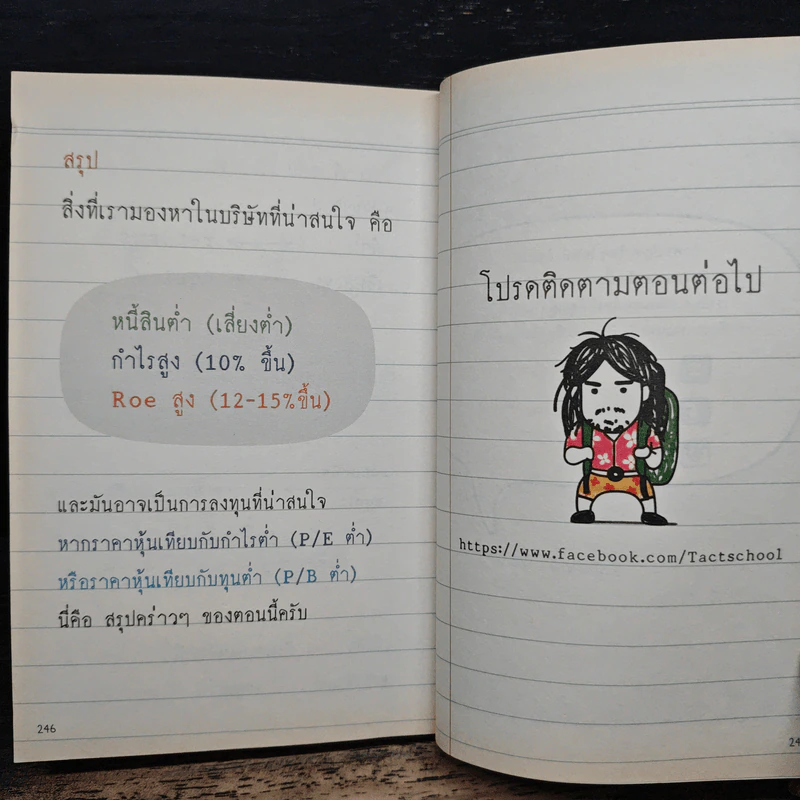 สรุป
สิ่งที่เรามองหาในบริษัทที่น่าสนใจ คือ
หนี้สินต่ำ (เสี่ยงต่ำ)
กำไรสูง (10% ขึ้น)
Roe สูง (12-15%ขึ้น)
และมันอาจเป็นการลงทุนที่น่าสนใจ
หากราคาหุ้นเทียบกับกำไรต่ำ (P/E ต่ำ)
หรือราคาหุ้นเทียบกับทุนต่ำ (P/B ต่ำ)
นี่คือ สรุปคร่าวๆ ของตอนนี้ครับ
246
โปรดติดตามตอนต่อไป
https://www.facebook.com/Tactschool